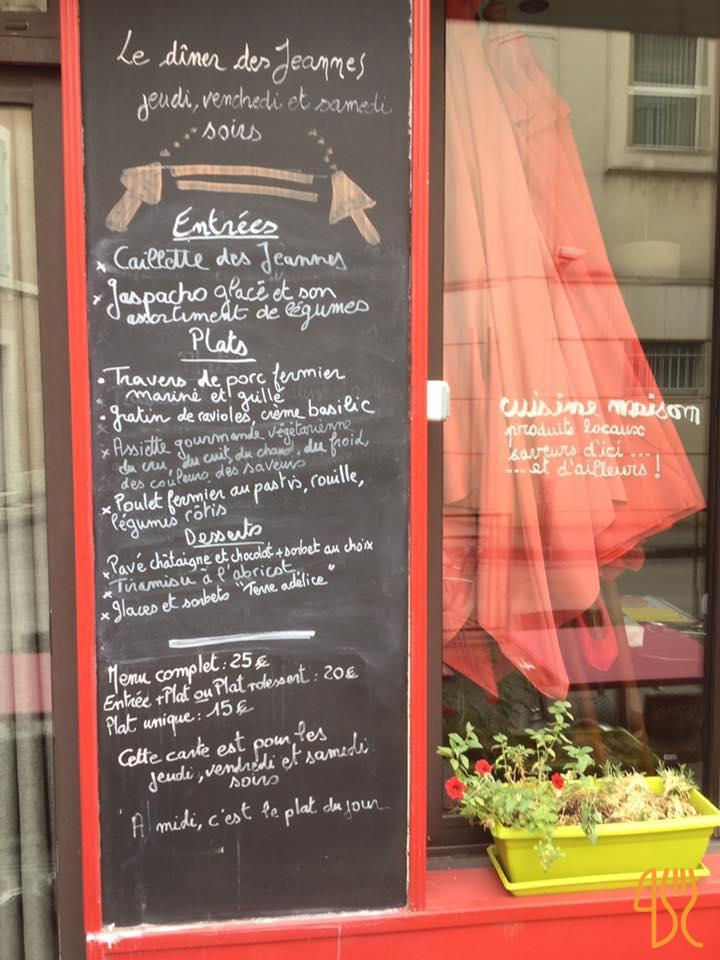 Le dîner des Jeannes
jeudi, vendredi et samedi
soirs
Entrées
x Caillette des Jeannes
x Gaspacho glacé et son
assortiment de légumes
Plats
• Travers de porc fermier
mariné et grillé
• Gratin de ravioles, crème basilic
x Assiette gourmande végétarienne
du cru, du cuit, du chaud, du froid,
des couleurs, des saveurs
x Poulet fermier au pastis, rouille,
légumes rôtis
Desserts
x Pavé châtaigne et chocolat + sorbet au choix
x Tiramisu à l'abricot
x Glaces et sorbets "Terre adélice"
Menu complet : 25 €
Entrée + Plat ou Plat + dessert : 20 €
Plat unique : 15 €
Cette carte est pour les
jeudi, vendredi et samedi
soirs
A midi, c'est le plat du jour
cuisine maison
produits locaux
saveurs d'ici ...
... et d'ailleurs !